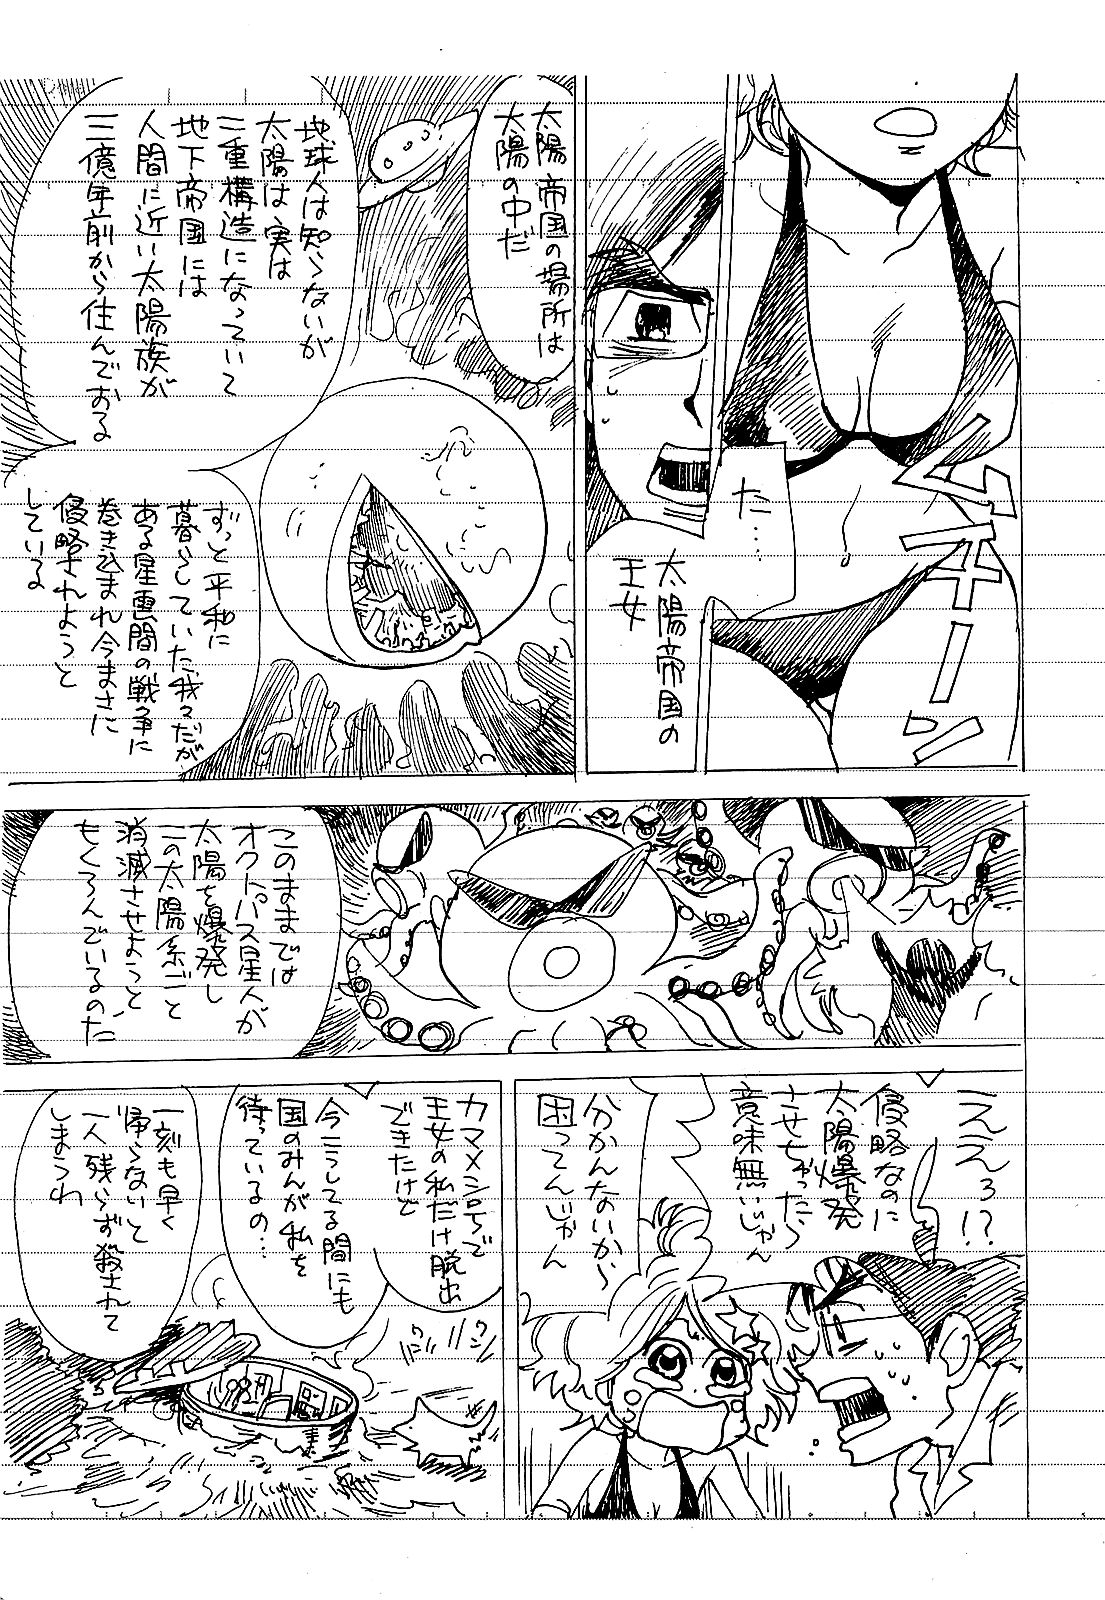 ムチーン
た…
太陽帝国の
王女
太陽帝国の場所は
太陽の中だ
地球人は知らないが
太陽は実は
二重構造になっていて
地下帝国には
人間に近い太陽族が
三億年前から住んでおる
ずっと平和に
暮らしていた我々だが
ある星雲間の戦争に
巻き込まれ今まさに
侵略されようと
している
このままでは
オクトパス星人が
太陽を爆発し
この太陽系ごと
消滅させようと
もくろんでいるのだ
ええろ!?
侵略なのに
太陽爆発
させちゃったら
意味無いじゃん
分かんないから
困ってんじゃん
カマメシ号で
王女の私だけ脱出
できたけど
今こうしてる間にも
国のみんが私を
待っているの…
一刻も早く
帰らないと
一人残らず殺されて
しまうわ